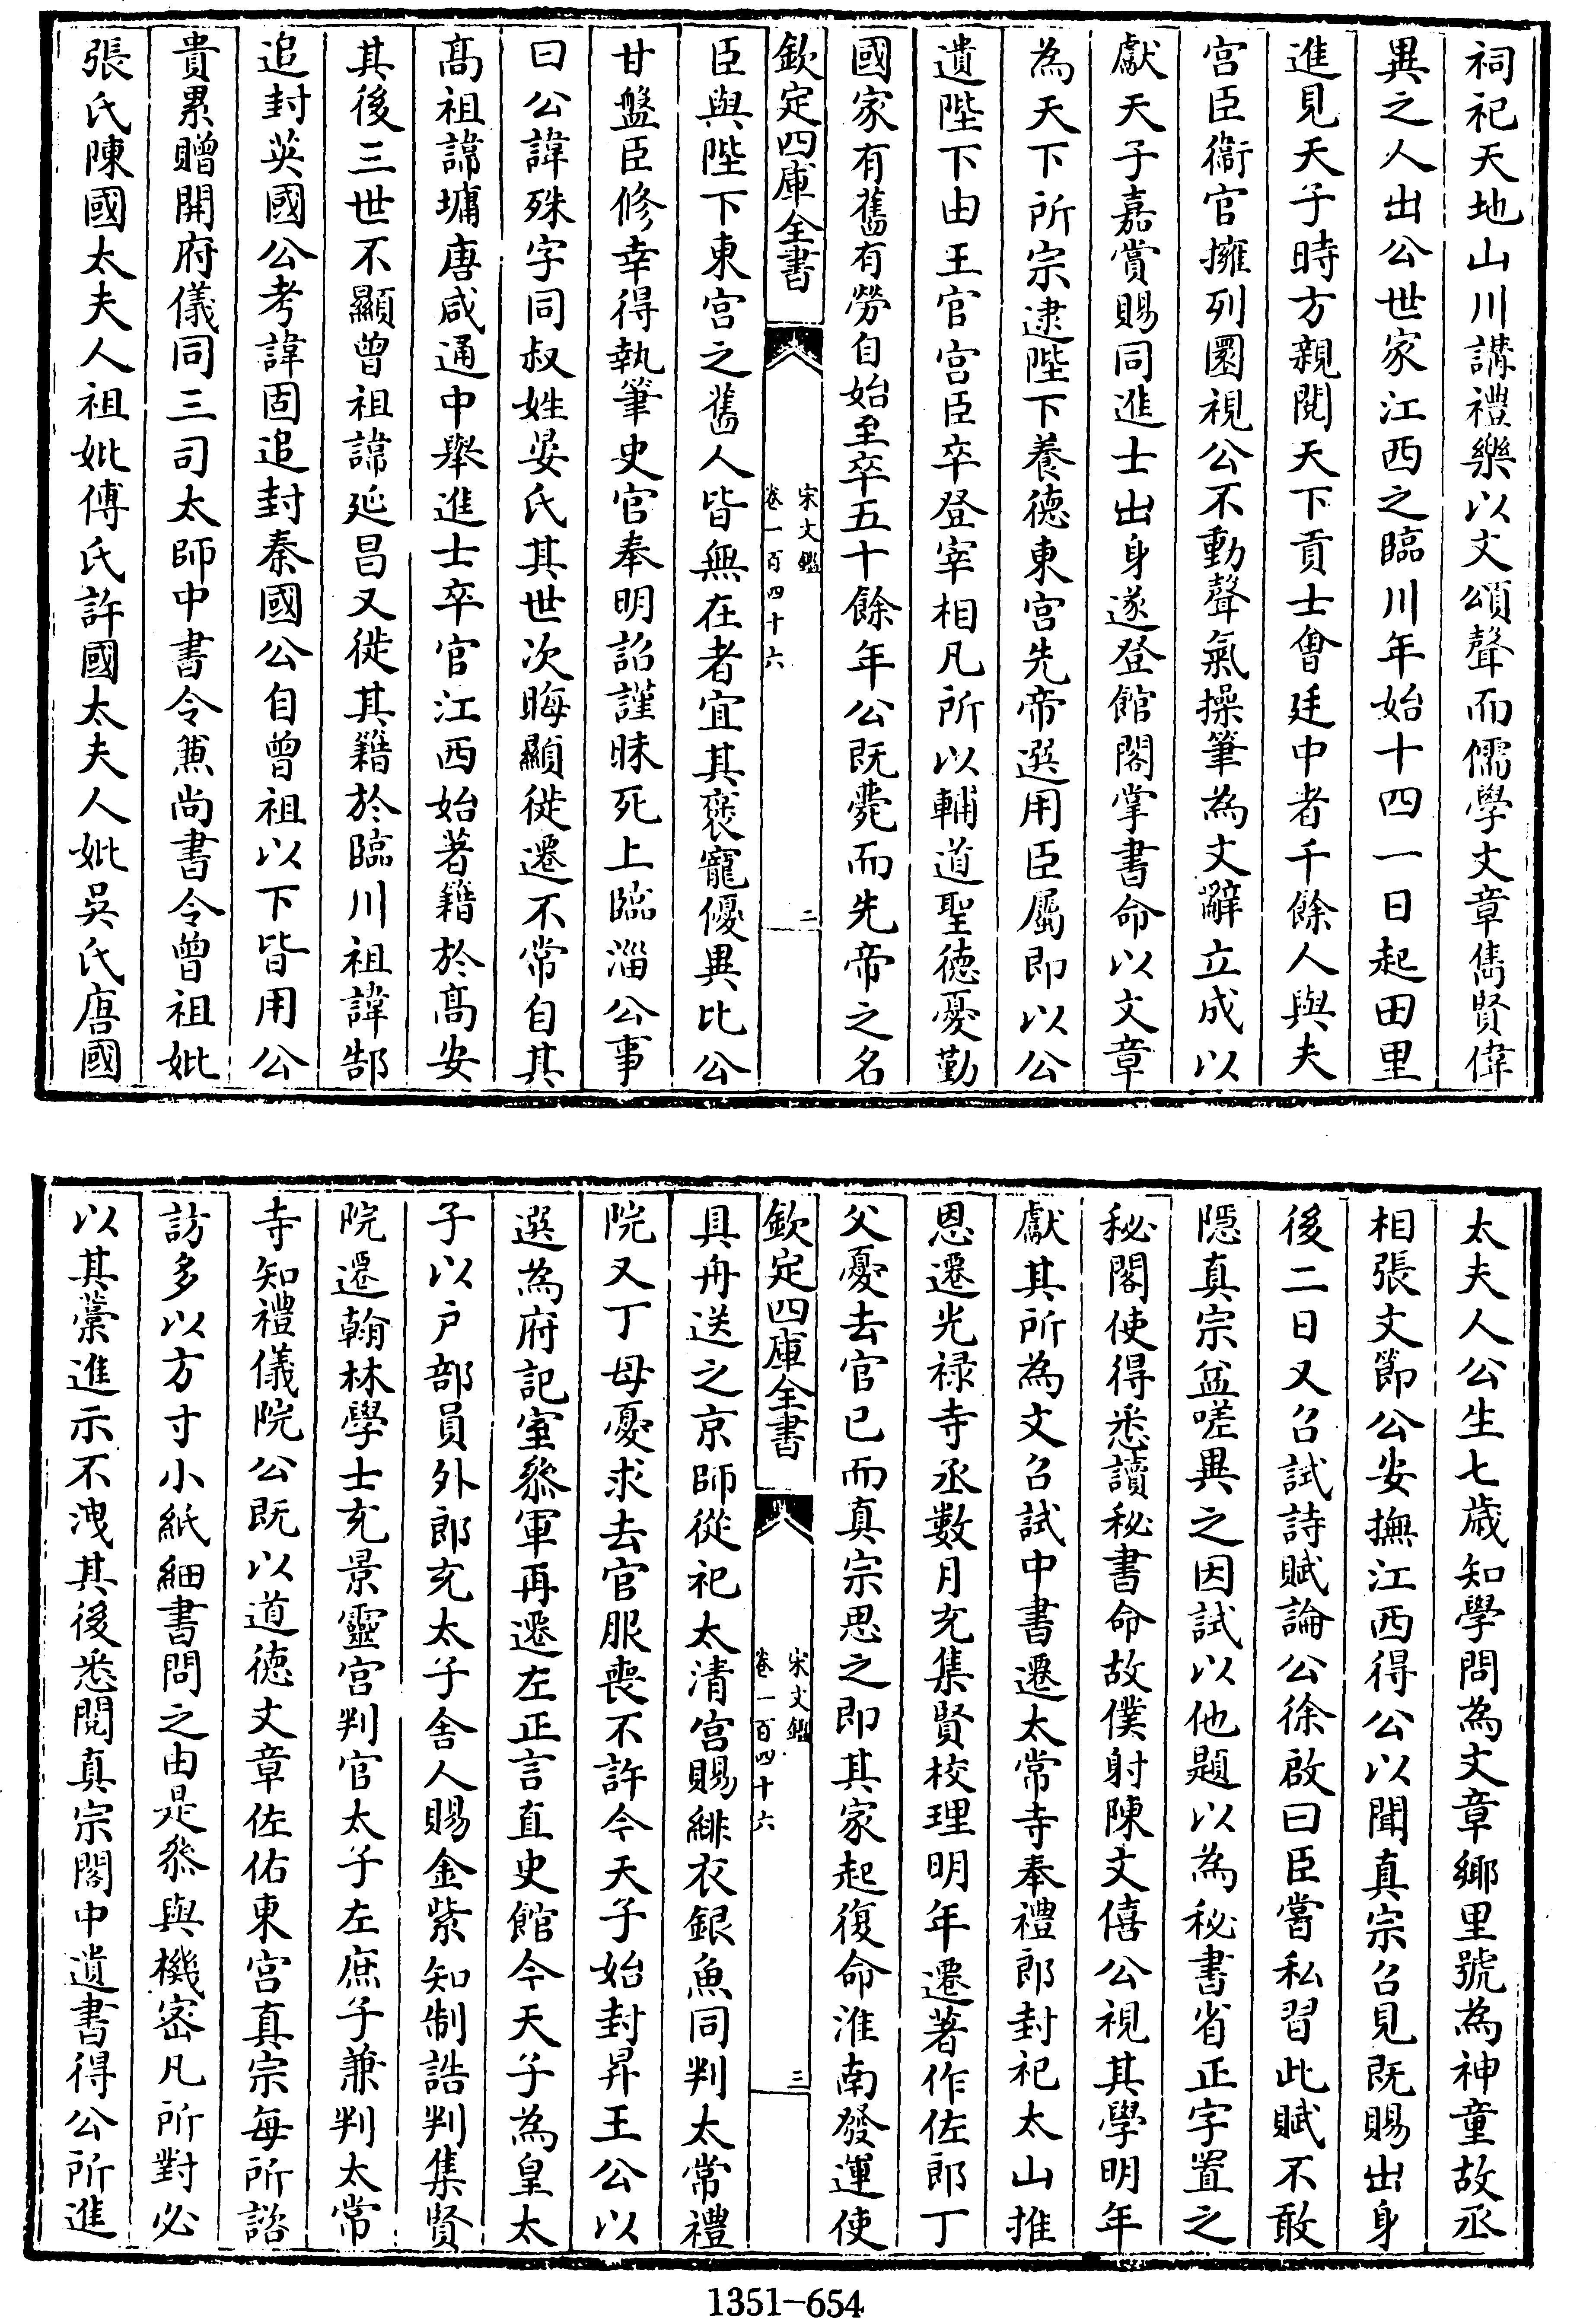 祠祀天地山川講禮樂以文頌聲而儒學文章雋賢偉
異之人出公世家江西之臨川年始十四一日起田里
進見天子時方親閱天下貢士㑹廷中者千餘人與夫
宫臣衞官擁列圜視公不動聲氣操筆為文辭立成以
獻天子嘉賞賜同進士出身遂登館閣掌書命以文章
為天下所宗逮陛下養德東宫先帝選用臣屬即以公
遺陛下由王官宫臣卒登宰相凡所以輔道聖德憂勤
國家有舊有勞自始至卒五十餘年公既薨而先帝之名
欽定四庫全書
宋文鑑
卷一百四十六
二
臣與陛下東宫之舊人皆無在者宜其襃寵優異比公
甘盤臣修幸得執筆史官奉明詔謹昧死上臨淄公事
曰公諱殊字同叔姓晏氏其世次晦顯徙遷不常自其
髙祖諱墉唐咸通中舉進士卒官江西始著籍於髙安
其後三世不顯曾祖諱延昌又徙其籍於臨川祖諱郜
追封英國公考諱固追封秦國公自曾祖以下皆用公
貴累贈開府儀同三司太師中書令兼尚書令曾祖妣
張氏陳國太夫人祖妣傅氏許國太夫人妣吳氏唐國
太夫人公生七歲知學問為文章鄉里號為神童故丞
相張文節公安撫江西得公以聞真宗召見既賜出身
後二日又召試詩賦論公徐啟曰臣嘗私習此賦不敢
隱真宗益嗟異之因試以他題以為秘書省正字置之
秘閣使得悉讀秘書命故僕射陳文僖公視其學明年
獻其所為文召試中書遷太常寺奉禮郎封祀太山推
恩遷光禄寺丞數月充集賢校理明年遷著作佐郎丁
父憂去官已而真宗思之即其家起復命淮南發運使
欽定四庫全書
宋文鑑
卷一百四十六
三
具舟送之京師從祀太清宫賜緋衣銀魚同判太常禮
院又丁母憂求去官服喪不許今天子始封昇王公以
選為府記室叅軍再遷左正言直史館今天子為皇太
子以户部員外郎充太子舍人賜金紫知制誥判集賢
院遷翰林學士充景靈宫判官太子左庶子兼判太常
寺知禮儀院公既以道德文章佐佑東宫真宗每所諮
訪多以方寸小紙細書問之由是叅與機密凡所對必
以其藁進示不洩其後悉閱真宗閣中遺書得公所進
1351-654